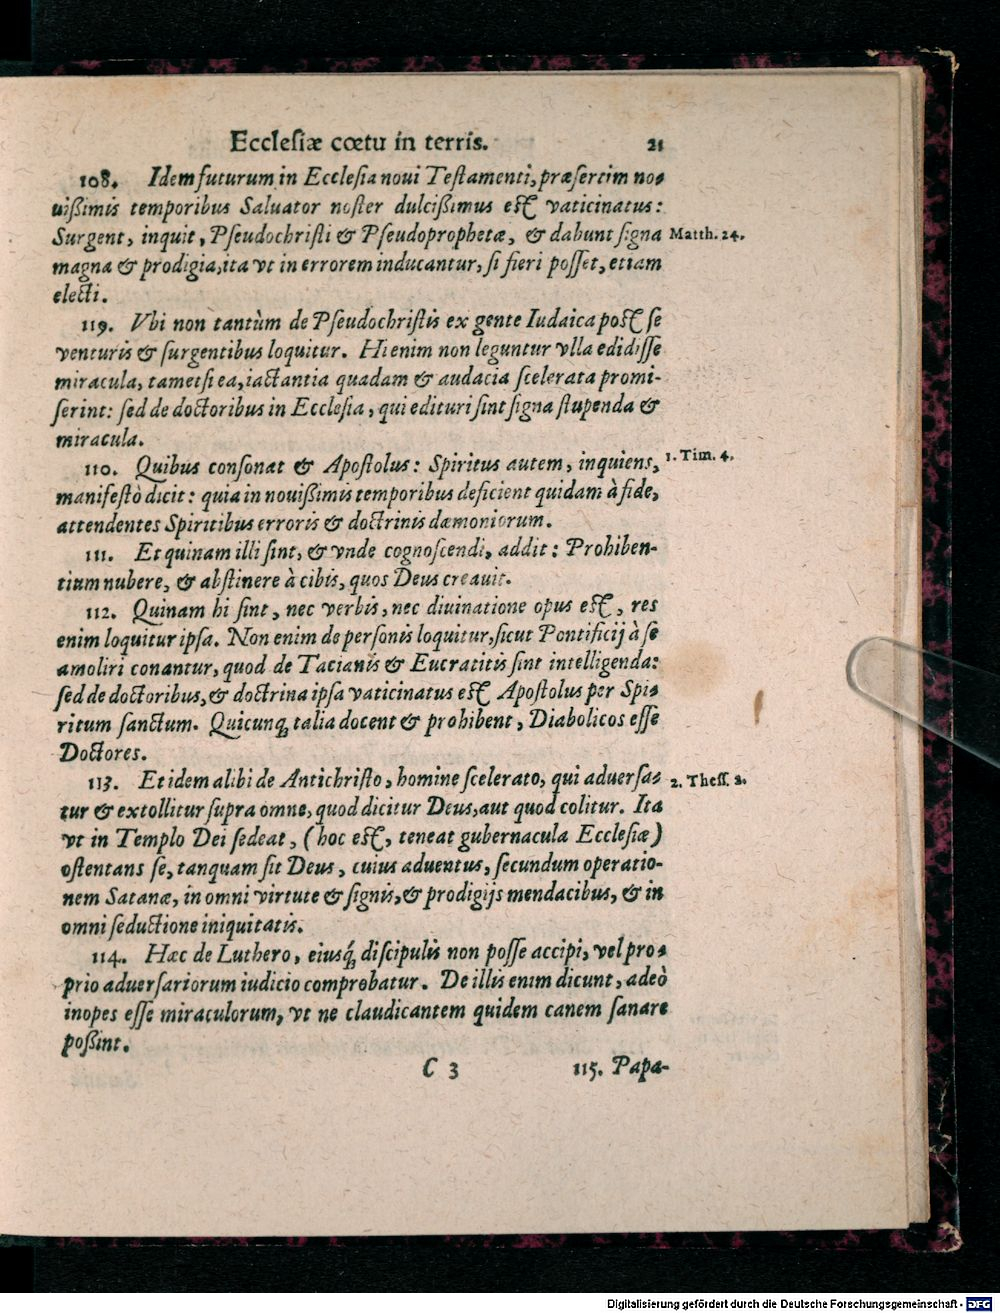 Ecclesiæ cœtu in terris. 21
108. Idem futurum in Ecclesia noui Testamenti, præsertim no-
uißimis temporibus Saluator noster dulcißimus est vaticinatus:
Surgent, inquit, Pseudochristi & Pseudoprophetæ, & dabunt signa Matth. 24.
magna & prodigia, ita vt in errorem inducantur, si fieri posset, etiam
electi.
119. Vbi non tantùm de Pseudochristis ex gente Iudaica post se
venturis & surgentibus loquitur. Hi enim non leguntur vlla edidisse
miracula, tametsi ea, iactantia quadam & audacia scelerata promi-
serint: sed de doctoribus in Ecclesia, qui edituri sint signa stupenda &
miracula.
110. Quibus consonat & Apostolus: Spiritus autem, inquiens, 1. Tim. 4.
manifestò dicit: quia in nouißimis temporibus deficient quidam à fide,
attendentes Spiritibus erroris & doctrinis dæmoniorum.
111. Et quinam illi sint, & vnde cognoscendi, addit: Prohiben-
tium nubere, & abstinere à cibis, quos Deus creauit.
112. Quinam hi sint, nec verbis, nec diuinatione opus est, res
enim loquitur ipsa. Non enim de personis loquitur, sicut Pontificij à se
amoliri conantur, quod de Tacianis & Eucratitis sint intelligenda:
sed de doctoribus, & doctrina ipsa vaticinatus est Apostolus per Spi-
ritum sanctum. Quicunq; talia docent & prohibent, Diabolicos esse
Doctores.
113. Et idem alibi de Antichristo, homine scelerato, qui aduersa- 2. Thess. 2.
tur & extollitur supra omne, quod dicitur Deus, aut quod colitur. Ita
vt in Templo Dei sedeat, (hoc est, teneat gubernacula Ecclesiæ)
ostentans se, tanquam sit Deus, cuius aduentus, secundum operatio-
nem Satanæ, in omni virtute & signis, & prodigijs mendacibus, & in
omni seductione iniquitatis.
114. Hæc de Luthero, eiusq́; discipulis non posse accipi, vel pro-
prio aduersariorum iudicio comprobatur. De illis enim dicunt, adeò
inopes esse miraculorum, vt ne claudicantem quidem canem sanare
poßint.
C 3 115. Papa-
Digitalisierung gefördert durch die Deutsche Forschungsgemeinschaft - DFG